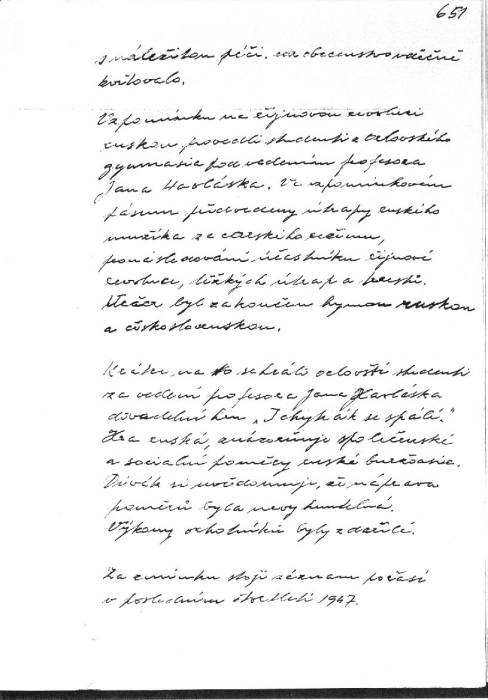 651
s náležitou péčí, což obecenstvo vděčně
kvitovalo.
Vzpomínku na říjnovou revoluci
ruskou, provedli studenti z orlovského
gymnasia pod vedením profesora
Jana Havláska. Ve vzpomínkovém
pásmu předvedeny útrapy ruského
mužíka za carského režimu,
pronásledování účastníků říjnové
revoluce, těžkých útrap a
Večer byl zakončen hymnou ruskou
a československou.
Krátce, na to sehráli orlovští studenti
za vedení profesora Jana Havláska
divadelní hru „I chytrák se spálí."
Hra ruská, znázorňuje společenské
a sociální poměry ruské buržoasie.
Divák si uvědomuje, že náprava
poměrů byla nevyhnutelná.
Výkony ochotníků byly zdařilé.
Za zmínku stojí záznam počasí
v posledním čtvrtletí 1947.